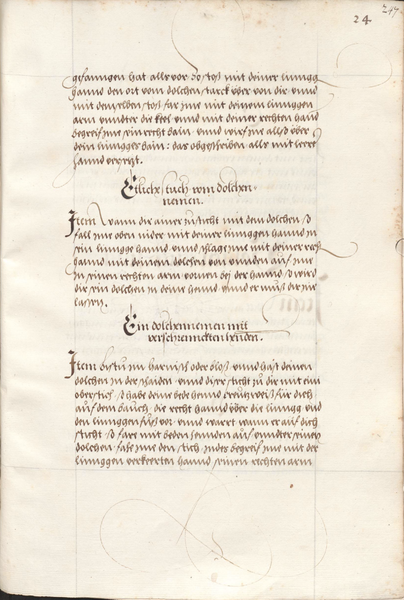 247
24
gefanngen hat alls vor. so stoß mit deiner linngg
hannd den ort vom dolchen starck vber von dir vnnd
mit demselben stoß far ime mit deinem linnggen
arm vnndter die kel vnnd mit deiner rechten hand
begreif ime sin recht bain. vnnd wirf ine allso vber
dein linnggs bain. das obgeschriben alls mit leerer
hannd verpeist.
Etliche stuch vom dolchen
nemen.
Item Wann dir ainer zusticht mit dem dolchen so
fall ime oben nider mit deiner linnggen hannd in
sin linngge hannd vnnd schlage ime mit deiner rechten
hannd mit deinem dolchen von vnnden auf ime
zu sinen rechten arm vornen bej der hannd so wird
dir sin dolchen in deine hennd vnnd er muß dir ine
lassen.
Ein dolchennemen mitt
verschrannckten hennden.
Item bistu im harnisch oder bloß vnnd hast deinen
dolchen in der schaiden vnnd diser sticht zu dir mit ein
oberstich so habe deine bede hennd creutzweiß für dich
auf dem bauch, die recht hannd vber die linngg vnd
den linnggen fuß vor. vnnd wart wann er auf dich
sticht so fare mit beden hennden auf vnnder sinen
dolchen, fasse ime den stich. indes begreif ime mit der
linnggen verkeerten hannd seinen rechten arm